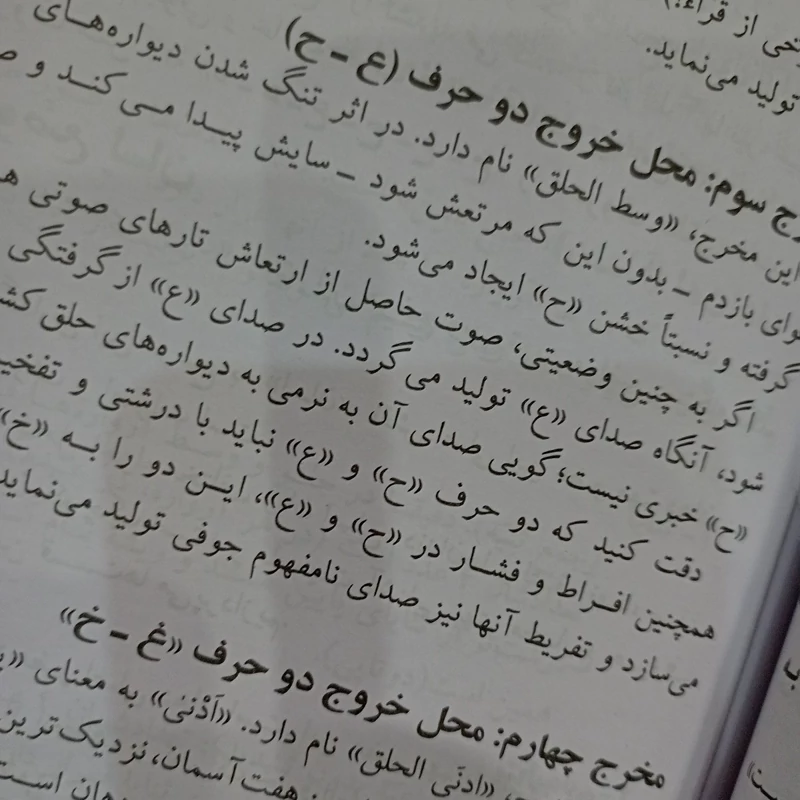 از قراء،)
تولید می‌نماید.
سوم: محل خروج دو حرف (ع - ح)
این مخرج، «وسط الحلق» نام دارد. در اثر تنگ شدن دیواره‌های
بازدم - بدون این که مرتعش شود - سایش پیدا می‌کند و
گرفته و نسبتاً خشن «ح» ایجاد می‌شود.
اگر به چنین وضعیتی، صوت حاصل از ارتعاش تارهای صوتی
شود، آنگاه صدای «ع» تولید می گردد. در صدای «ع» از گرفتگی
«ح» خبری نیست؛ گویی صدای آن به نرمی به دیواره‌های حلق
دقت کنید که دو حرف «ح» و «ع» نباید با درشتی و
همچنین افراط و فشار در «ح» و «ع»، این دو را به «خ»
می‌سازد و تفریط آنها نیز صدای نامفهوم جوفی تولید می‌نماید
مخرج چهارم: محل خروج دو حرف «غ - خ»
«ادنَی الحلق» نام دارد. «اَدْنیٰ» به معنای
هفت آسمان، نزدیک‌ترین